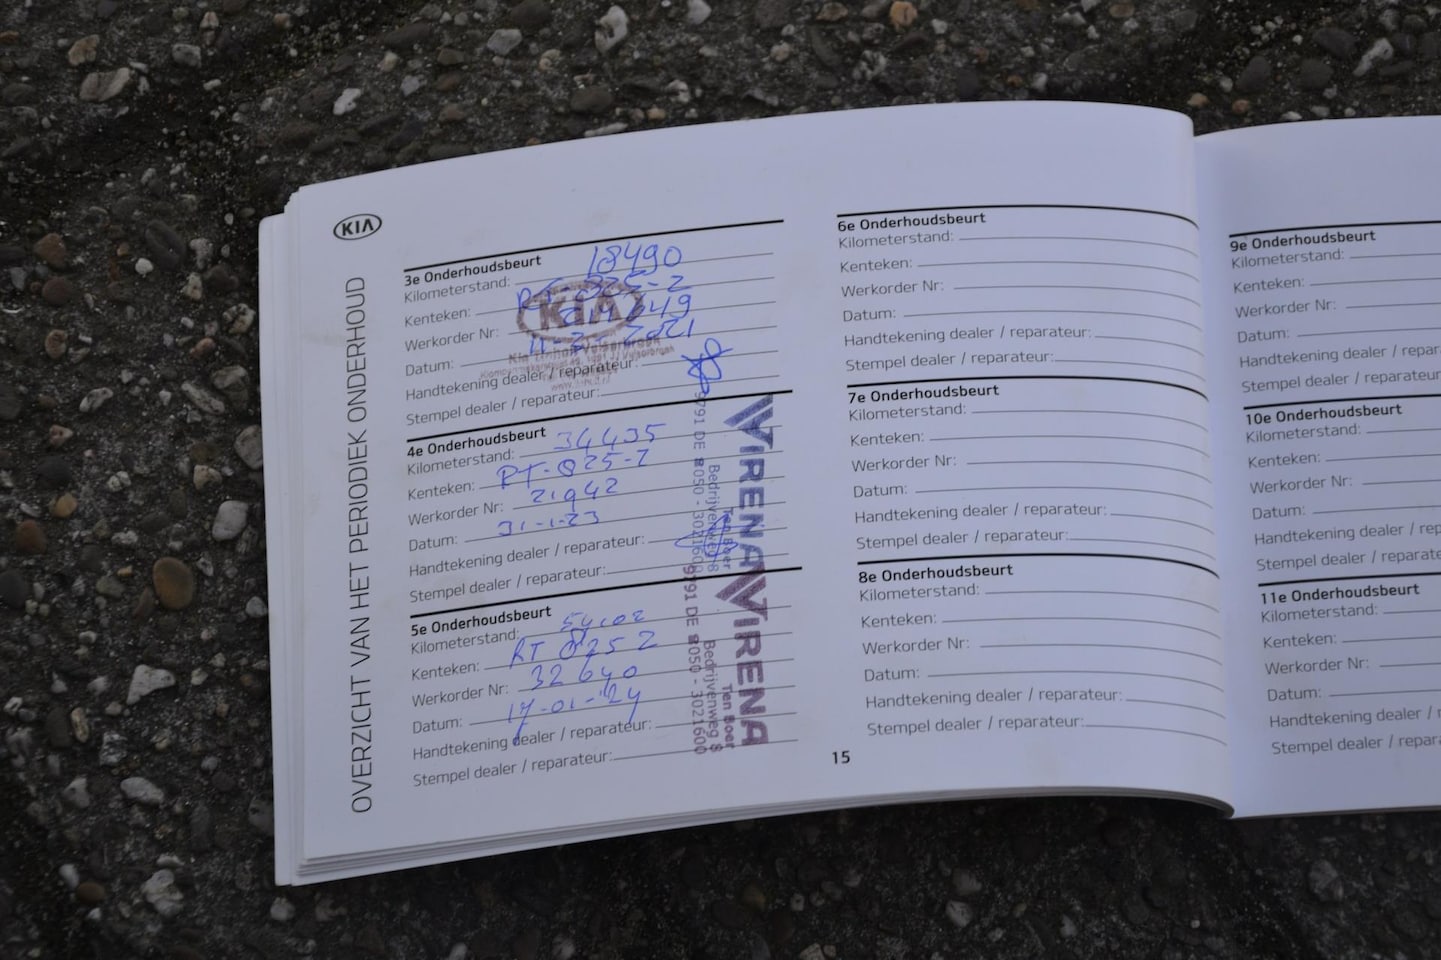 KIA
OVERZICHT VAN HET PERIODIEK ONDERHOUD
3e Onderhoudsbeurt
Kilometerstand: 18490
Kenteken:
Werkorder Nr:
Datum: 2021
Handtekening dealer / reparateur:
Stempel dealer / reparateur:
KIA
4e Onderhoudsbeurt
Kilometerstand: 34435
Kenteken: RT-825-Z
Werkorder Nr: 21942
Datum: 31-1-23
Handtekening dealer / reparateur:
Stempel dealer / reparateur:
VIRENA
Ten Boer
Bedrijvenweg 8
9791 DE 050 - 3021600
5e Onderhoudsbeurt
Kilometerstand:
Kenteken: RT 825 Z
Werkorder Nr: 32640
Datum: 17-01-'24
Handtekening dealer / reparateur:
Stempel dealer / reparateur:
VIRENA
Ten Boer
Bedrijvenweg 8
9791 DE 050 - 3021600
6e Onderhoudsbeurt
Kilometerstand:
Kenteken:
Werkorder Nr:
Datum:
Handtekening dealer / reparateur:
Stempel dealer / reparateur:
7e Onderhoudsbeurt
Kilometerstand:
Kenteken:
Werkorder Nr:
Datum:
Handtekening dealer / reparateur:
Stempel dealer / reparateur:
8e Onderhoudsbeurt
Kilometerstand:
Kenteken:
Werkorder Nr:
Datum:
Handtekening dealer / reparateur:
Stempel dealer / reparateur:
15
9e Onderhoudsbeurt
Kilometerstand:
Kenteken:
Werkorder Nr:
Datum:
Handtekening dealer / repar
Stempel dealer / reparate
10e Onderhoudsbeurt
Kilometerstand:
Kenteken:
Werkorder Nr:
Datum:
Handtekening dealer / re
Stempel dealer / reparat
11e Onderhoudsbeurt
Kilometerstand:
Kenteken:
Werkorder Nr:
Datum:
Handtekening dealer / r
Stempel dealer / repara